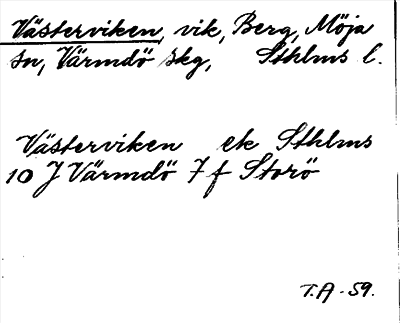 Västerviken, vik, Berg, Möja
sn, Värmdö skg, Sthlms l.
Västerviken ek Sthlms
10 J Värmdö 7 f Storö
T.A-59.